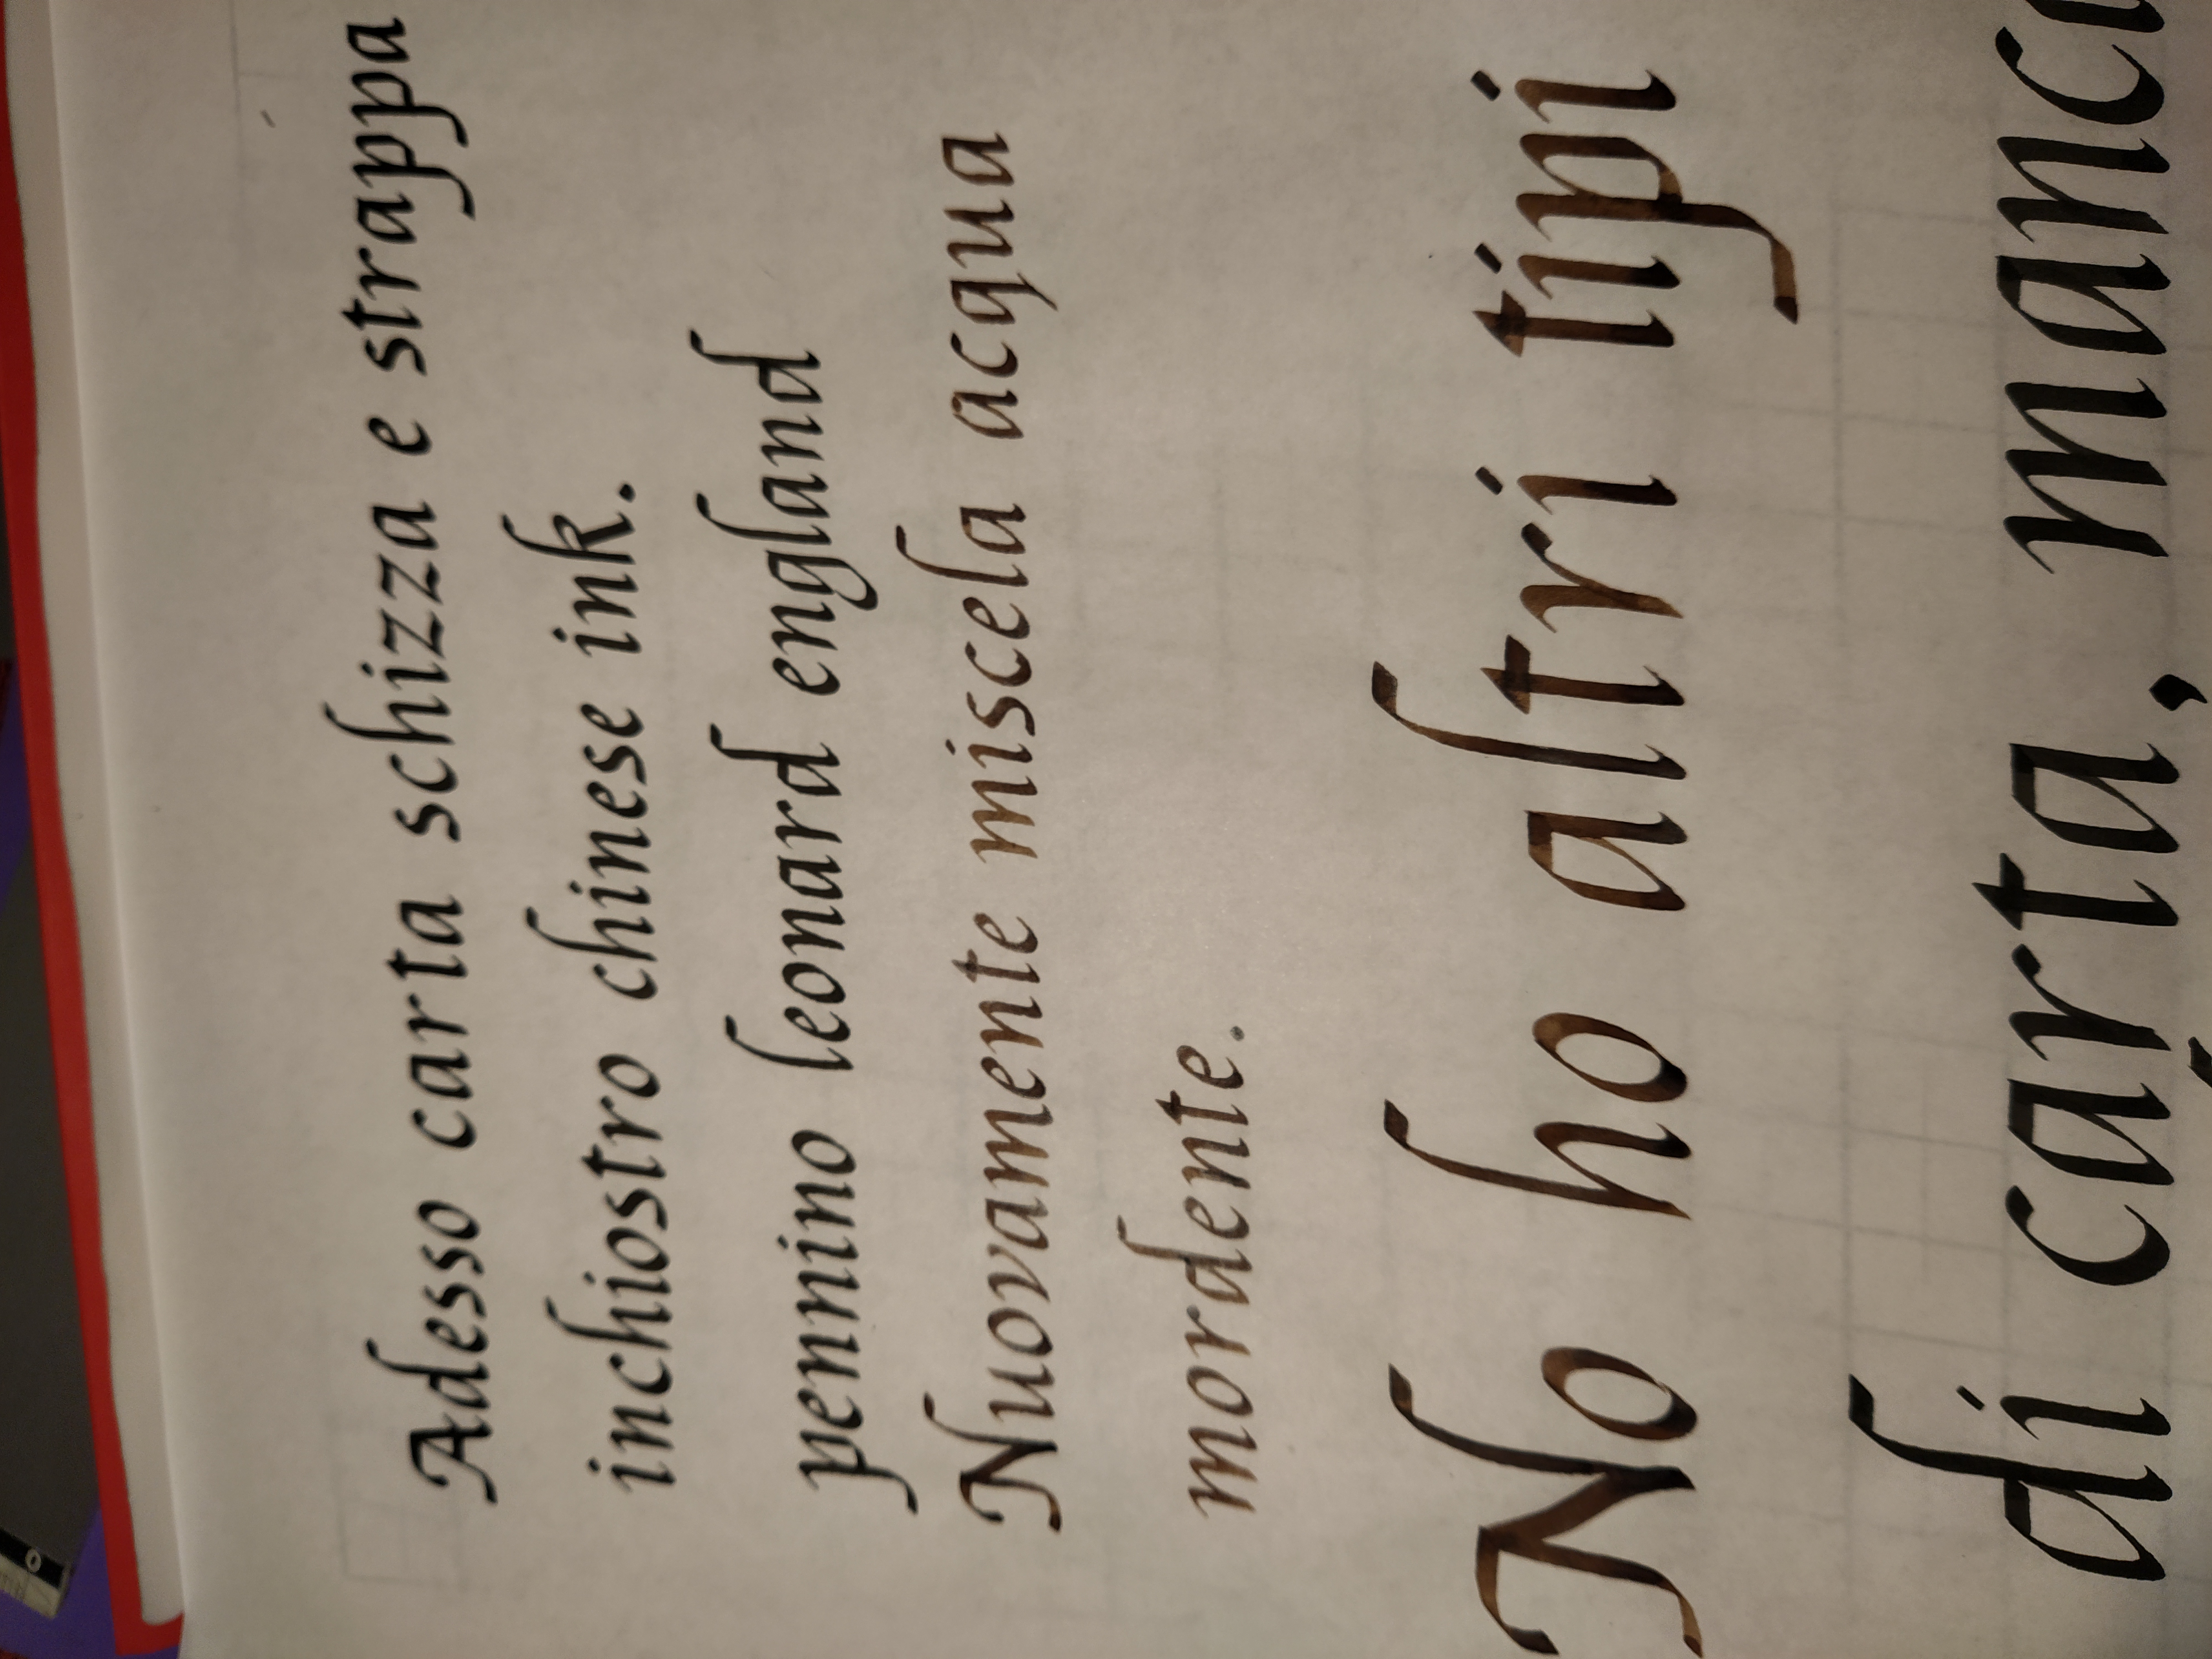 Adesso carta schizza e strappa
inchiostro chinese ink.
pennino leonard england
Nuovamente miscela acqua
mordente.
No ho altri tipi
di carta,